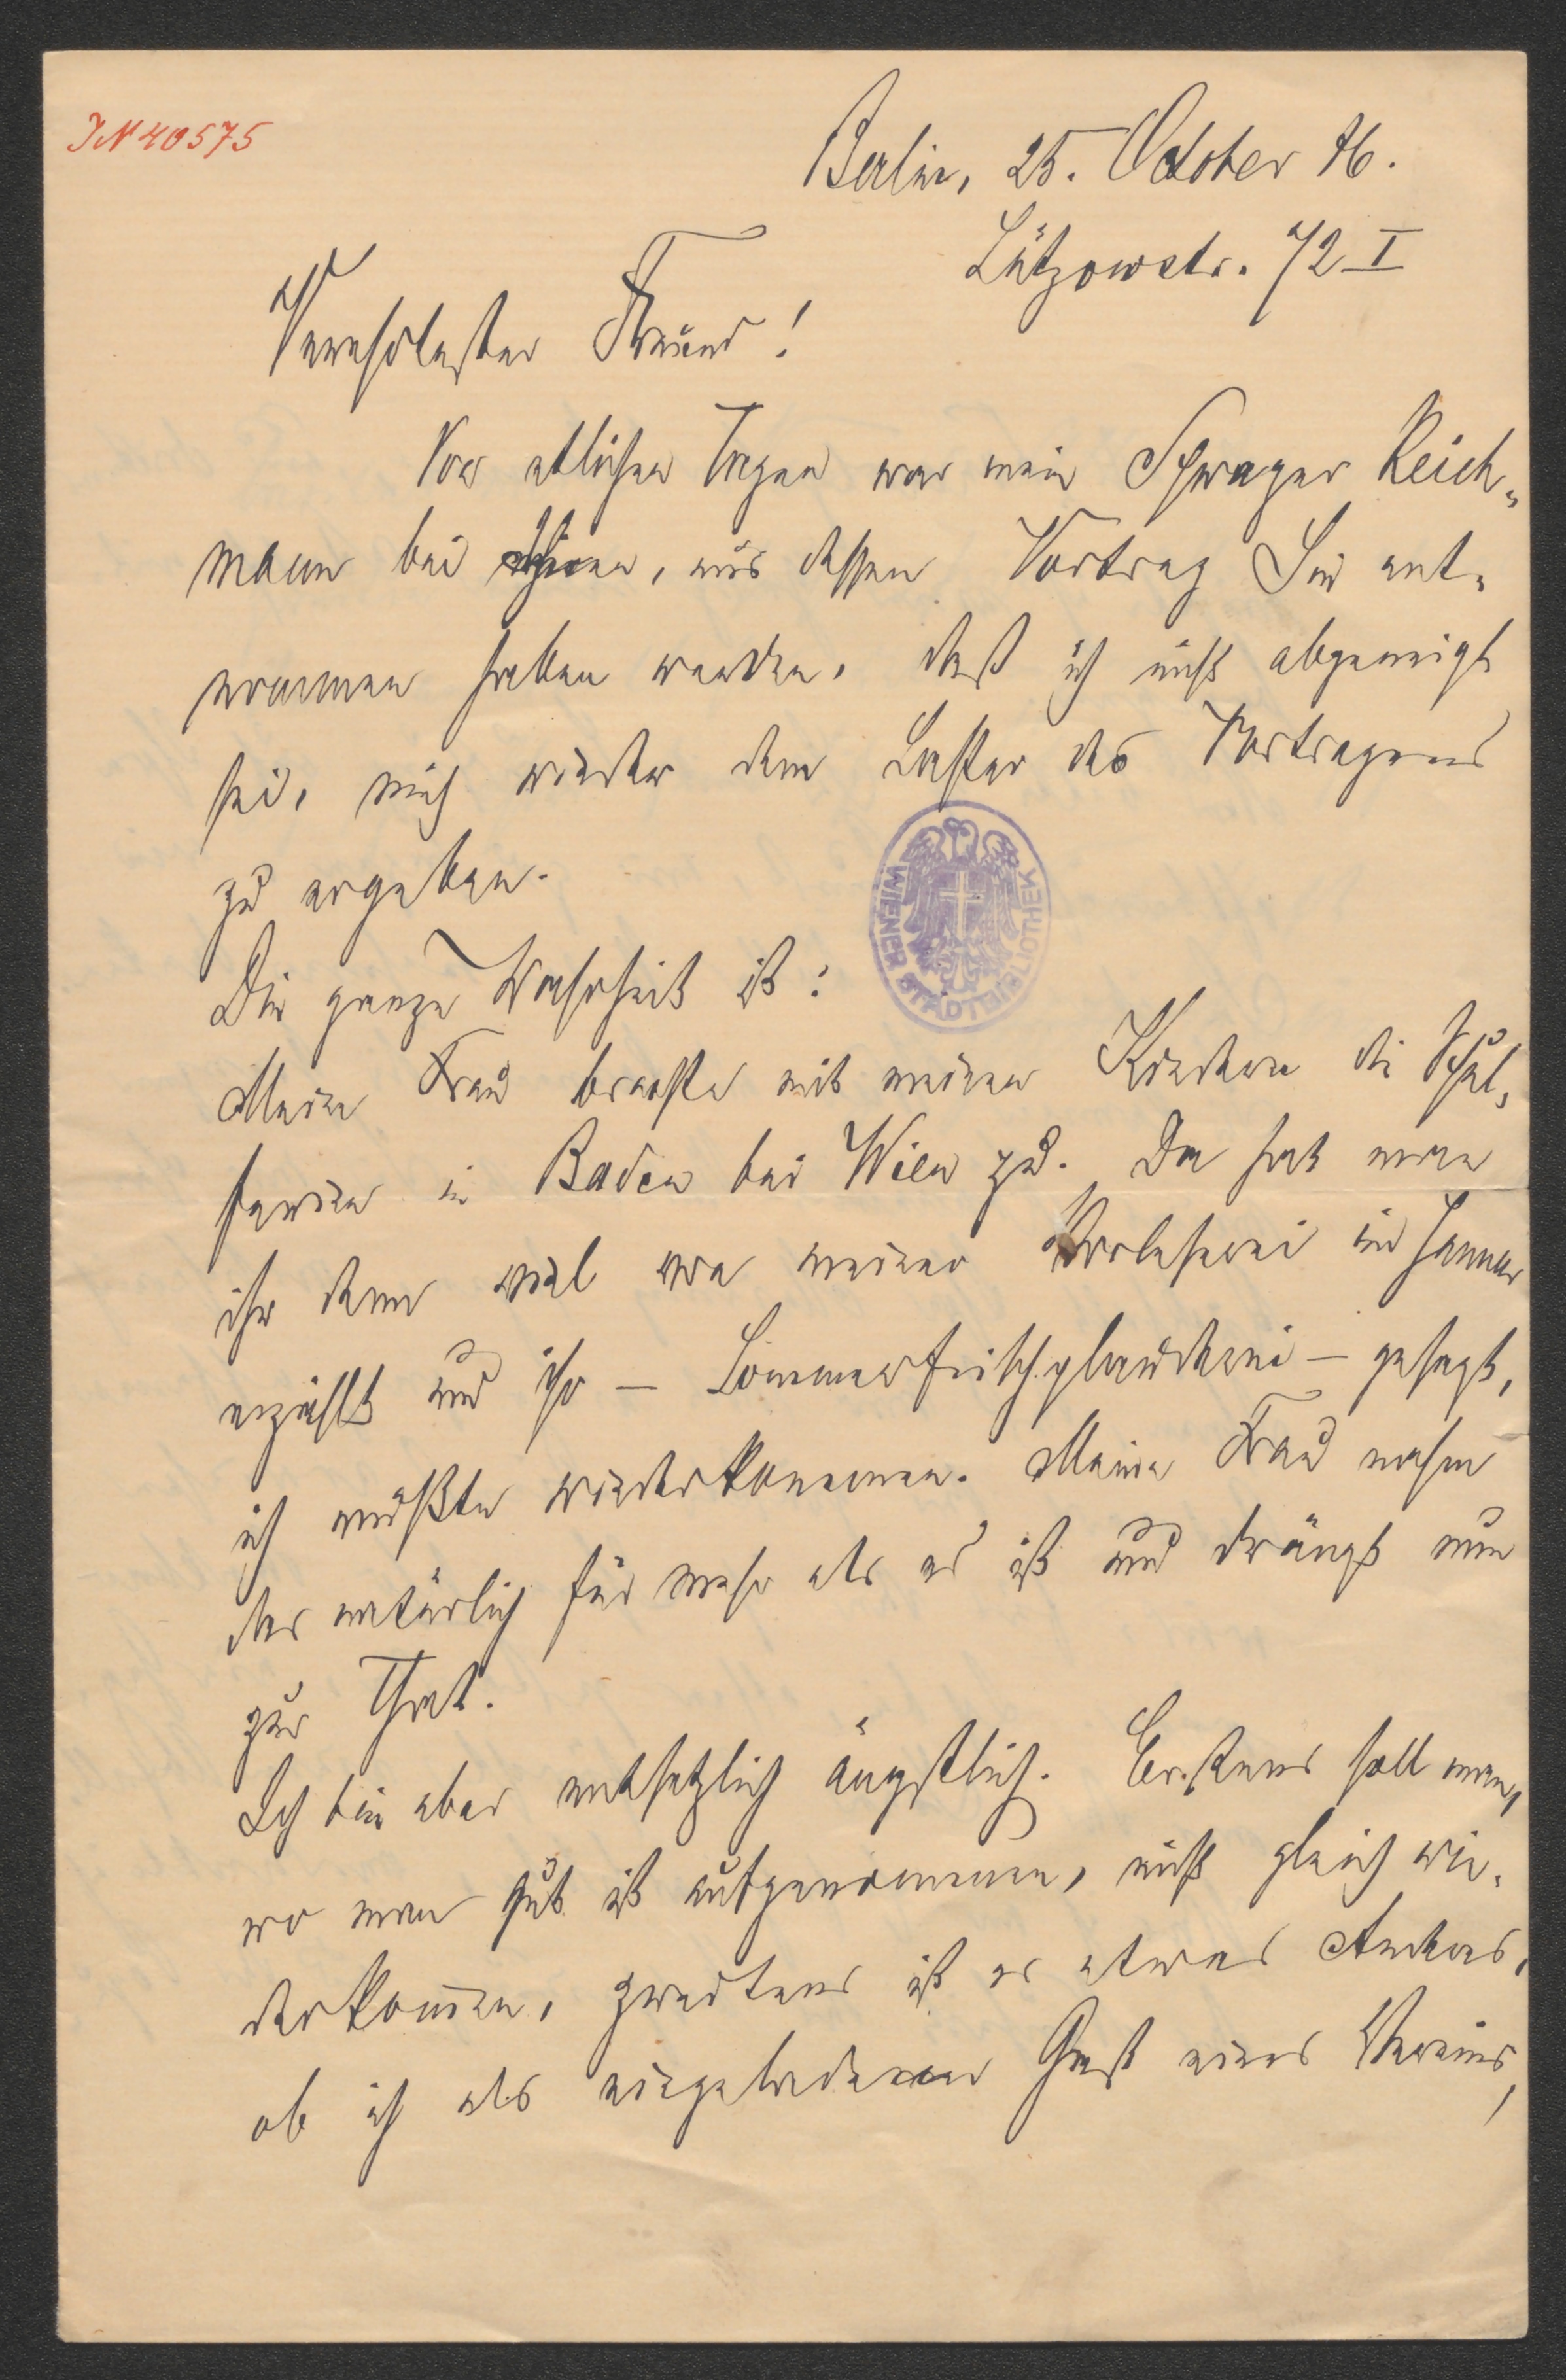 JN 40575
Berlin, 25. October 76.
Lützowstr. 72 I
Verehrtester Freund!
Vor etlichen Tagen war mein Schwager Reich-
mann bei Ihnen, aus dessen Vortrag Sie ent-
nommen haben werden, daß ich nicht abgeneigt
sei, mich wieder dem Laster des Vortragens
zu ergeben.
WIENER STADTBIBLIOTHEK
Die ganze Wahrheit ist:
Meine Frau brachte mit meinen Kindern die Schul-
ferien in Baden bei Wien zu. Da hat man
ihr denn viel von meiner Vorleserei im Januar
erzählt und ihr – Sommerfrischplauderei – gesagt,
ich müßte wiederkommen. Meine Frau nahm
das natürlich für mehr als es ist und drängt nun
zur That.
Ich bin aber entsetzlich ängstlich. Erstens soll man,
wo man gut ist aufgenommen, nicht gleich wie-
derkom̄en, zweitens ist es etwas Anderes,
ob ich als eingeladener Gast eines Vereins,